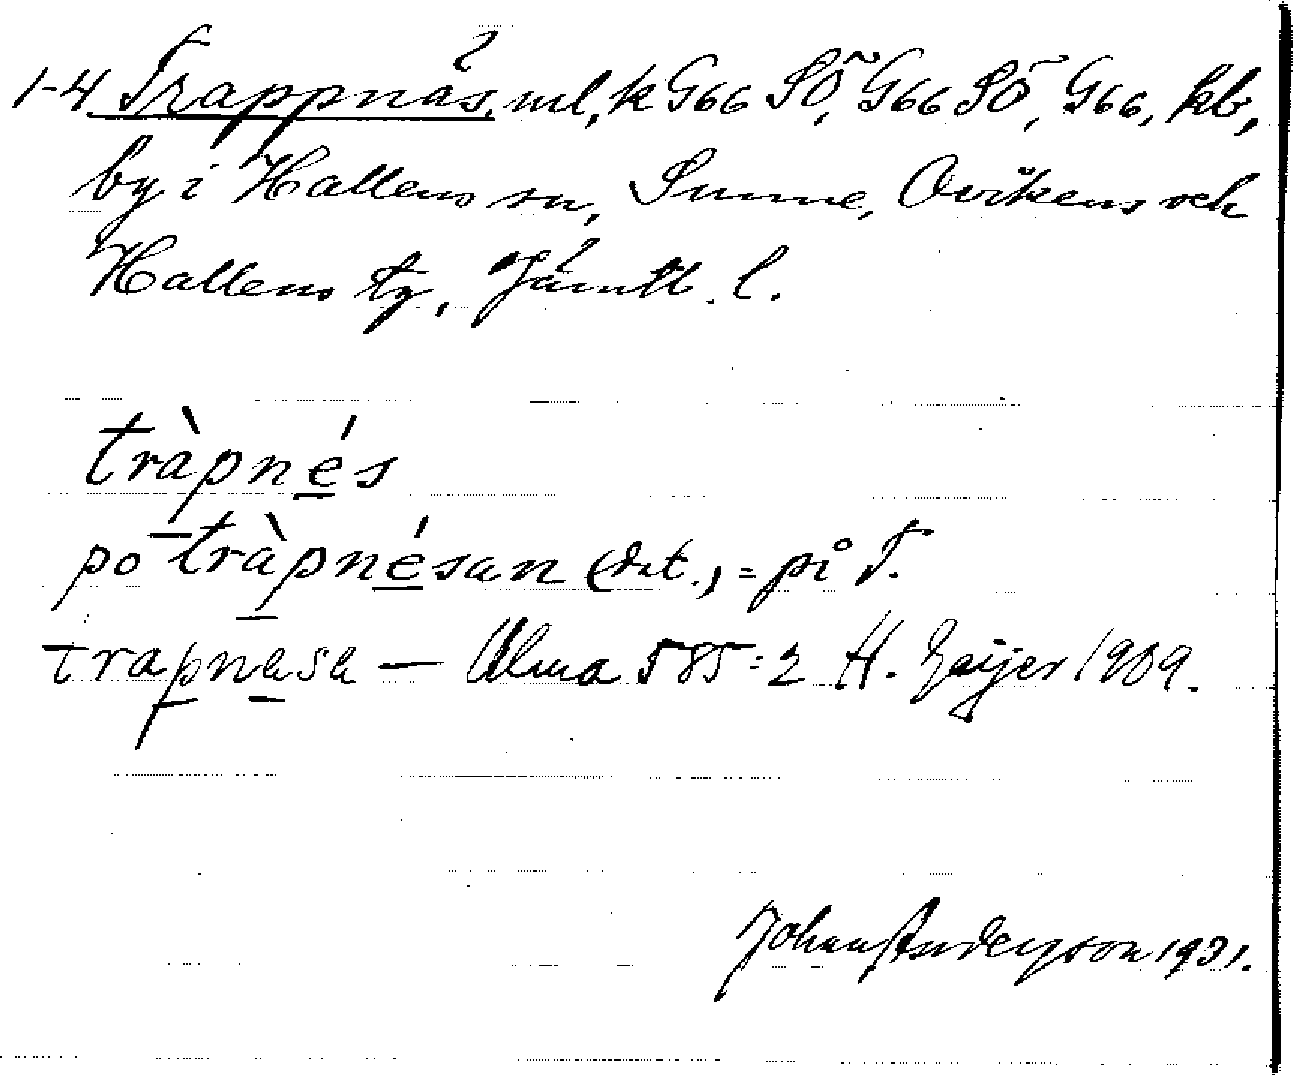 1-4 Trappnäs, ml, k G66 SÖ, G66 SÖ, G66, kb,
by i Hallens sn, Sunne, Ovikens och
Hallens tg, Jämtl. l.
tràpnés
po tràpnésan (dat.) = på T.
trapnasa — Ulma 585:2 H. Geijer 1909.
Johan Anderson 1931.